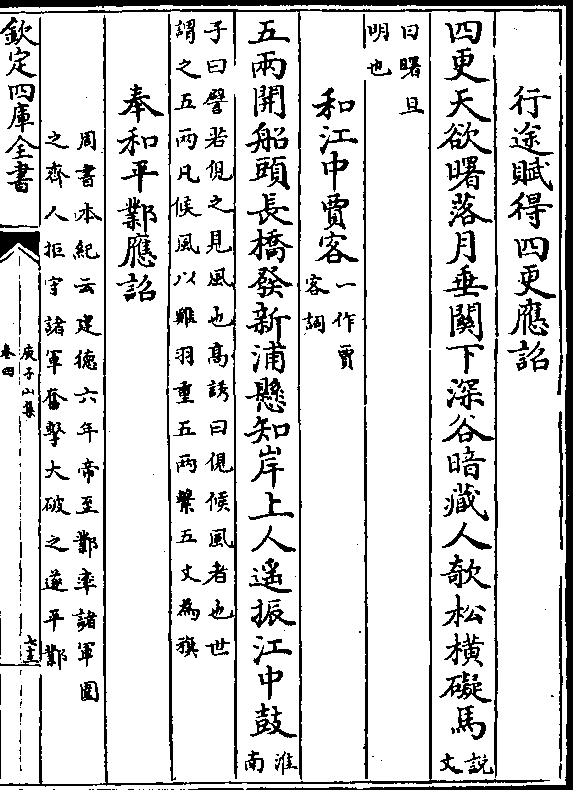 行途賦得四更應詔
四更天欲曙落月垂關下深谷暗藏人欹松橫礙馬說文
曰曙旦
明也
和江中賈客一作賈
客詞
五兩開船頭長橋發新浦懸知岸上人遥振江中鼓淮南
子曰譬若俔之見風也高誘曰俔候風者也世
謂之五兩凡候風以雞羽重五兩繫五丈為旗
奉和平鄴應詔
周書本紀云建德六年帝至鄴率諸軍圍
之齊人拒守諸軍奮擊大破之遂平鄴
欽定四庫全書
庾子山集
卷四